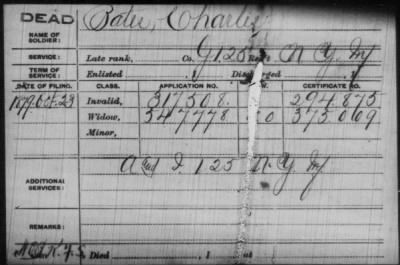 DEAD
NAME OF SOLDIER: Bates, Charles
SERVICE: Late rank, Co. G, 125 Reg't N.Y. Inf
TERM OF SERVICE: Enlisted , 1 Discharged , 1
DATE OF FILING. CLASS. APPLICATION NO. CERTIFICATE NO.
1879. Oct. 23 Invalid, 317.508. 294.875
Widow, 547778 375069
Minor,
ADDITIONAL SERVICES: A and I. 125 N.Y. Inf
REMARKS:
Died , 1 at